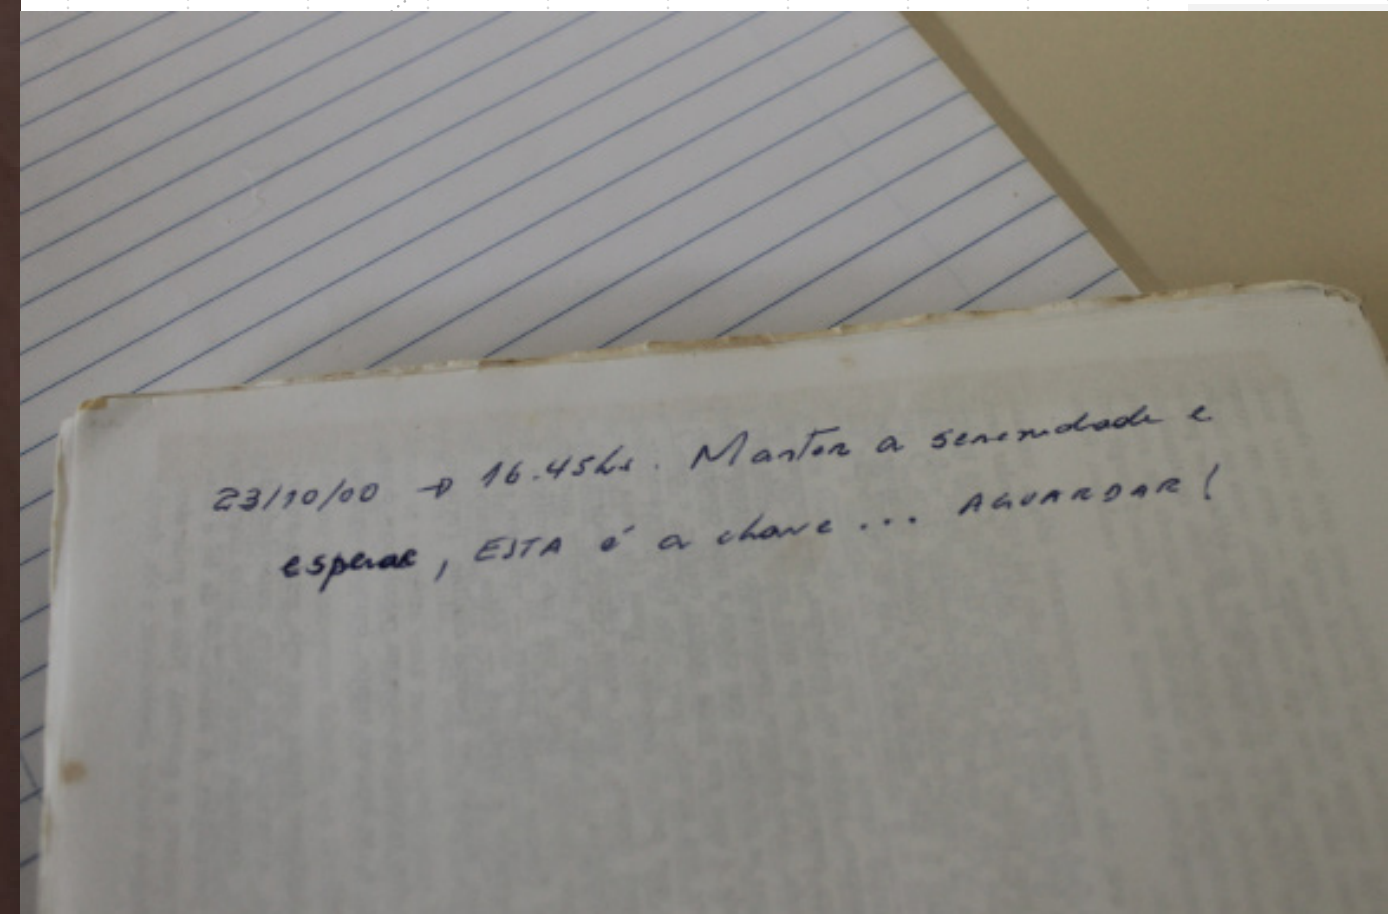 23/10/00 → 16.45hs. Manter a serenidade e
esperar, ESTA é a chave... AGUARDAR!